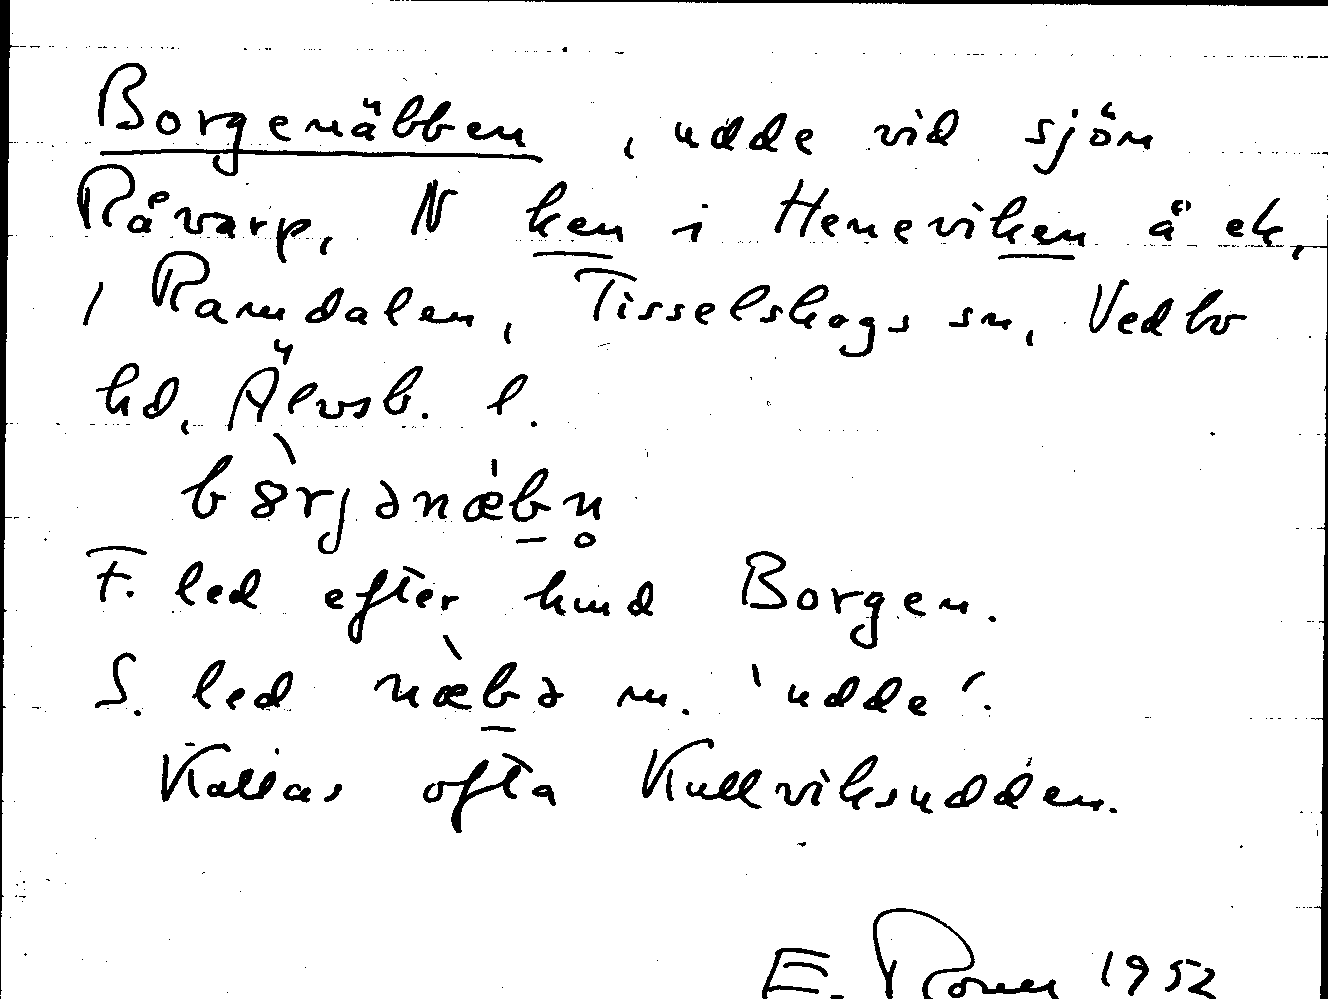 Borgenäbben, udde vid sjön
Råvarp, N ken i Heneviken å ek,
i Ramdalen, Tisselskogs sn, Vedbo
hd, Älvsb. l.
F. led efter hmd Borgen.
S. led næbə m. 'udde'.
Kallas ofta Kullviksudden.
E. 1952